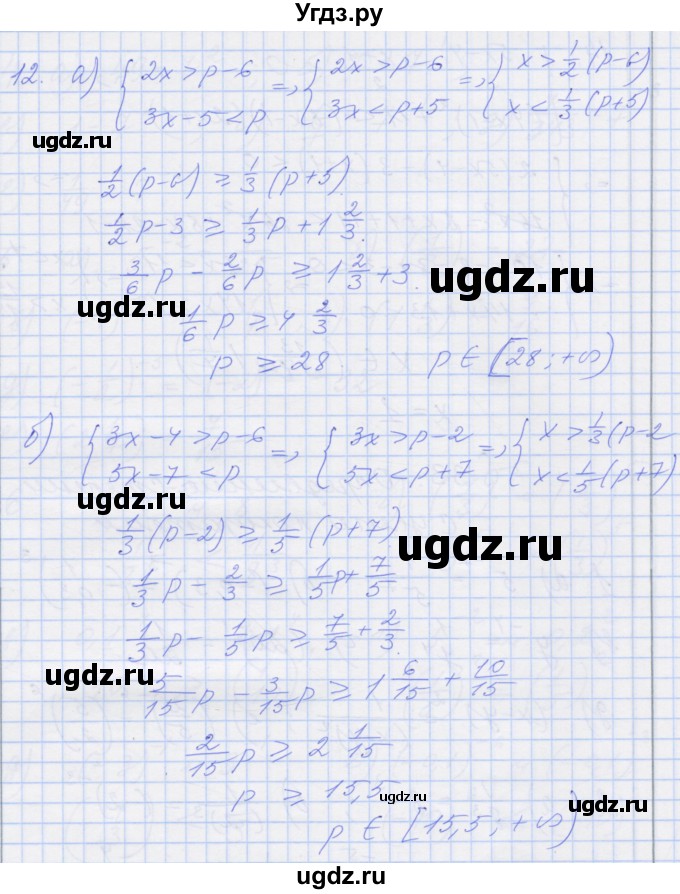 Угдз.ру
12. а) { 2x > p - 6 =, { 2x > p - 6 =, { x > 1/2 (p - 6)
3x - 5 < p   3x < p + 5   x < 1/3 (p + 5)
ugdz.ru
1/2 (p - 6) ≥ 1/3 (p + 5).
1/2 p - 3 ≥ 1/3 p + 1 2/3.
3/6 p - 2/6 p ≥ 1 2/3 + 3.
ugdz.ru
ugdz.ru
1/6 p ≥ 4 2/3
p ≥ 28.   p ∈ [28; +∞)
б) { 3x - 4 > p - 6 =, { 3x > p - 2 =, { x > 1/3 (p - 2
5x - 7 < p   5x < p + 7   x < 1/5 (p + 7)
1/3 (p - 2) ≥ 1/5 (p + 7)
ugdz.ru
1/3 p - 2/3 ≥ 1/5 p + 7/5
1/3 p - 1/5 p ≥ 7/5 + 2/3.
ugdz.ru
5/15 p - 3/15 p ≥ 1 6/15 + 10/15
2/15 p ≥ 2 1/15
p ≥ 15,5
ugdz.ru
ugdz.ru
p ∈ [15,5; +∞)